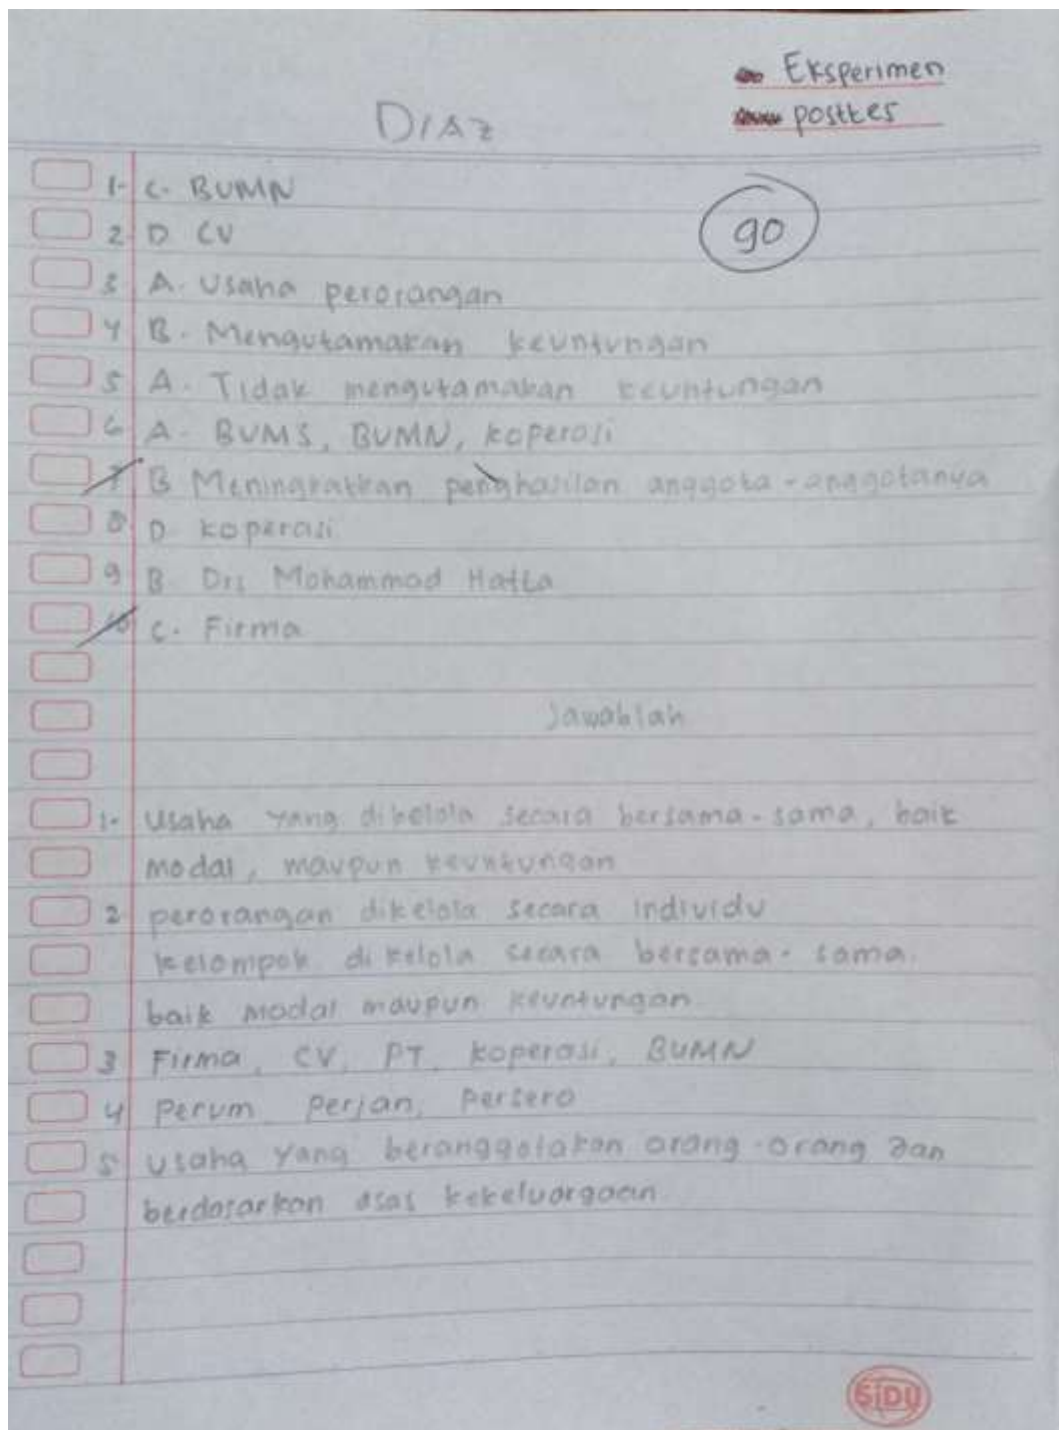 Eksperimen
posttes
DIAZ
90
1. C. BUMN
2 D CV
3 A. Usaha perorangan
4 B. Mengutamakan keuntungan
5 A. Tidak mengutamakan keuntungan
6 A. BUMS, BUMN, koperasi
7 B Meningkatkan penghasilan anggota-anggotanya
8 D koperasi
9 B Drs Mohammad Hatta
10 C. Firma
Jawablah
1. Usaha yang dikelola secara bersama-sama, baik
modal, maupun keuntungan
2 perorangan dikelola secara individu
kelompok dikelola secara bersama-sama.
baik modal maupun keuntungan
3 Firma, CV, PT, koperasi, BUMN
4 Perum, Perjan, Persero
5 Usaha yang beranggotakan orang-orang dan
berdasarkan asas kekeluargaan
SiDU